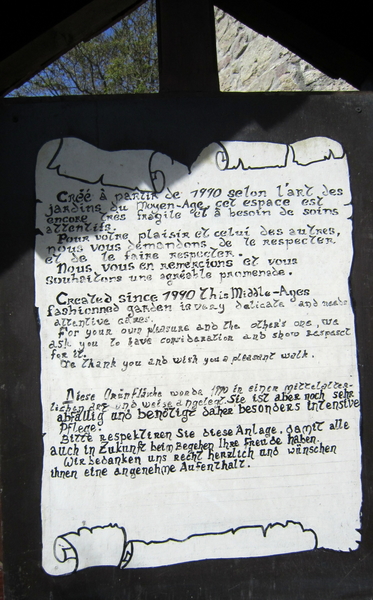 Créé à partir de 1990 selon l'art des
jardins du Moyen-Age, cet espace est
encore très fragile et à besoin de soins
attentifs.
Pour votre plaisir et celui des autres,
nous vous demandons de le respecter
et de le faire respecter.
Nous vous en remercions et vous
souhaitons une agréable promenade.
Created since 1990 this Middle-Ages
fashionned garden is very delicate and needs
attentive cares.
For your own pleasure and the other's one, we
ask you to have consideration and show respect
for it.
We thank you and wish you a pleasant walk.
Diese Grünfläche wurde 1990 in einer mittelalter-
lichen Art und weise angelegt. Sie ist aber noch sehr
anfällig und benötigt daher besonders intensive
Pflege.
Bitte respektieren Sie diese Anlage, damit alle
auch in Zukunft beim Begehen Ihre Freude haben.
Wir bedanken uns recht herzlich und wünschen
ihnen eine angenehme Aufenthalt.